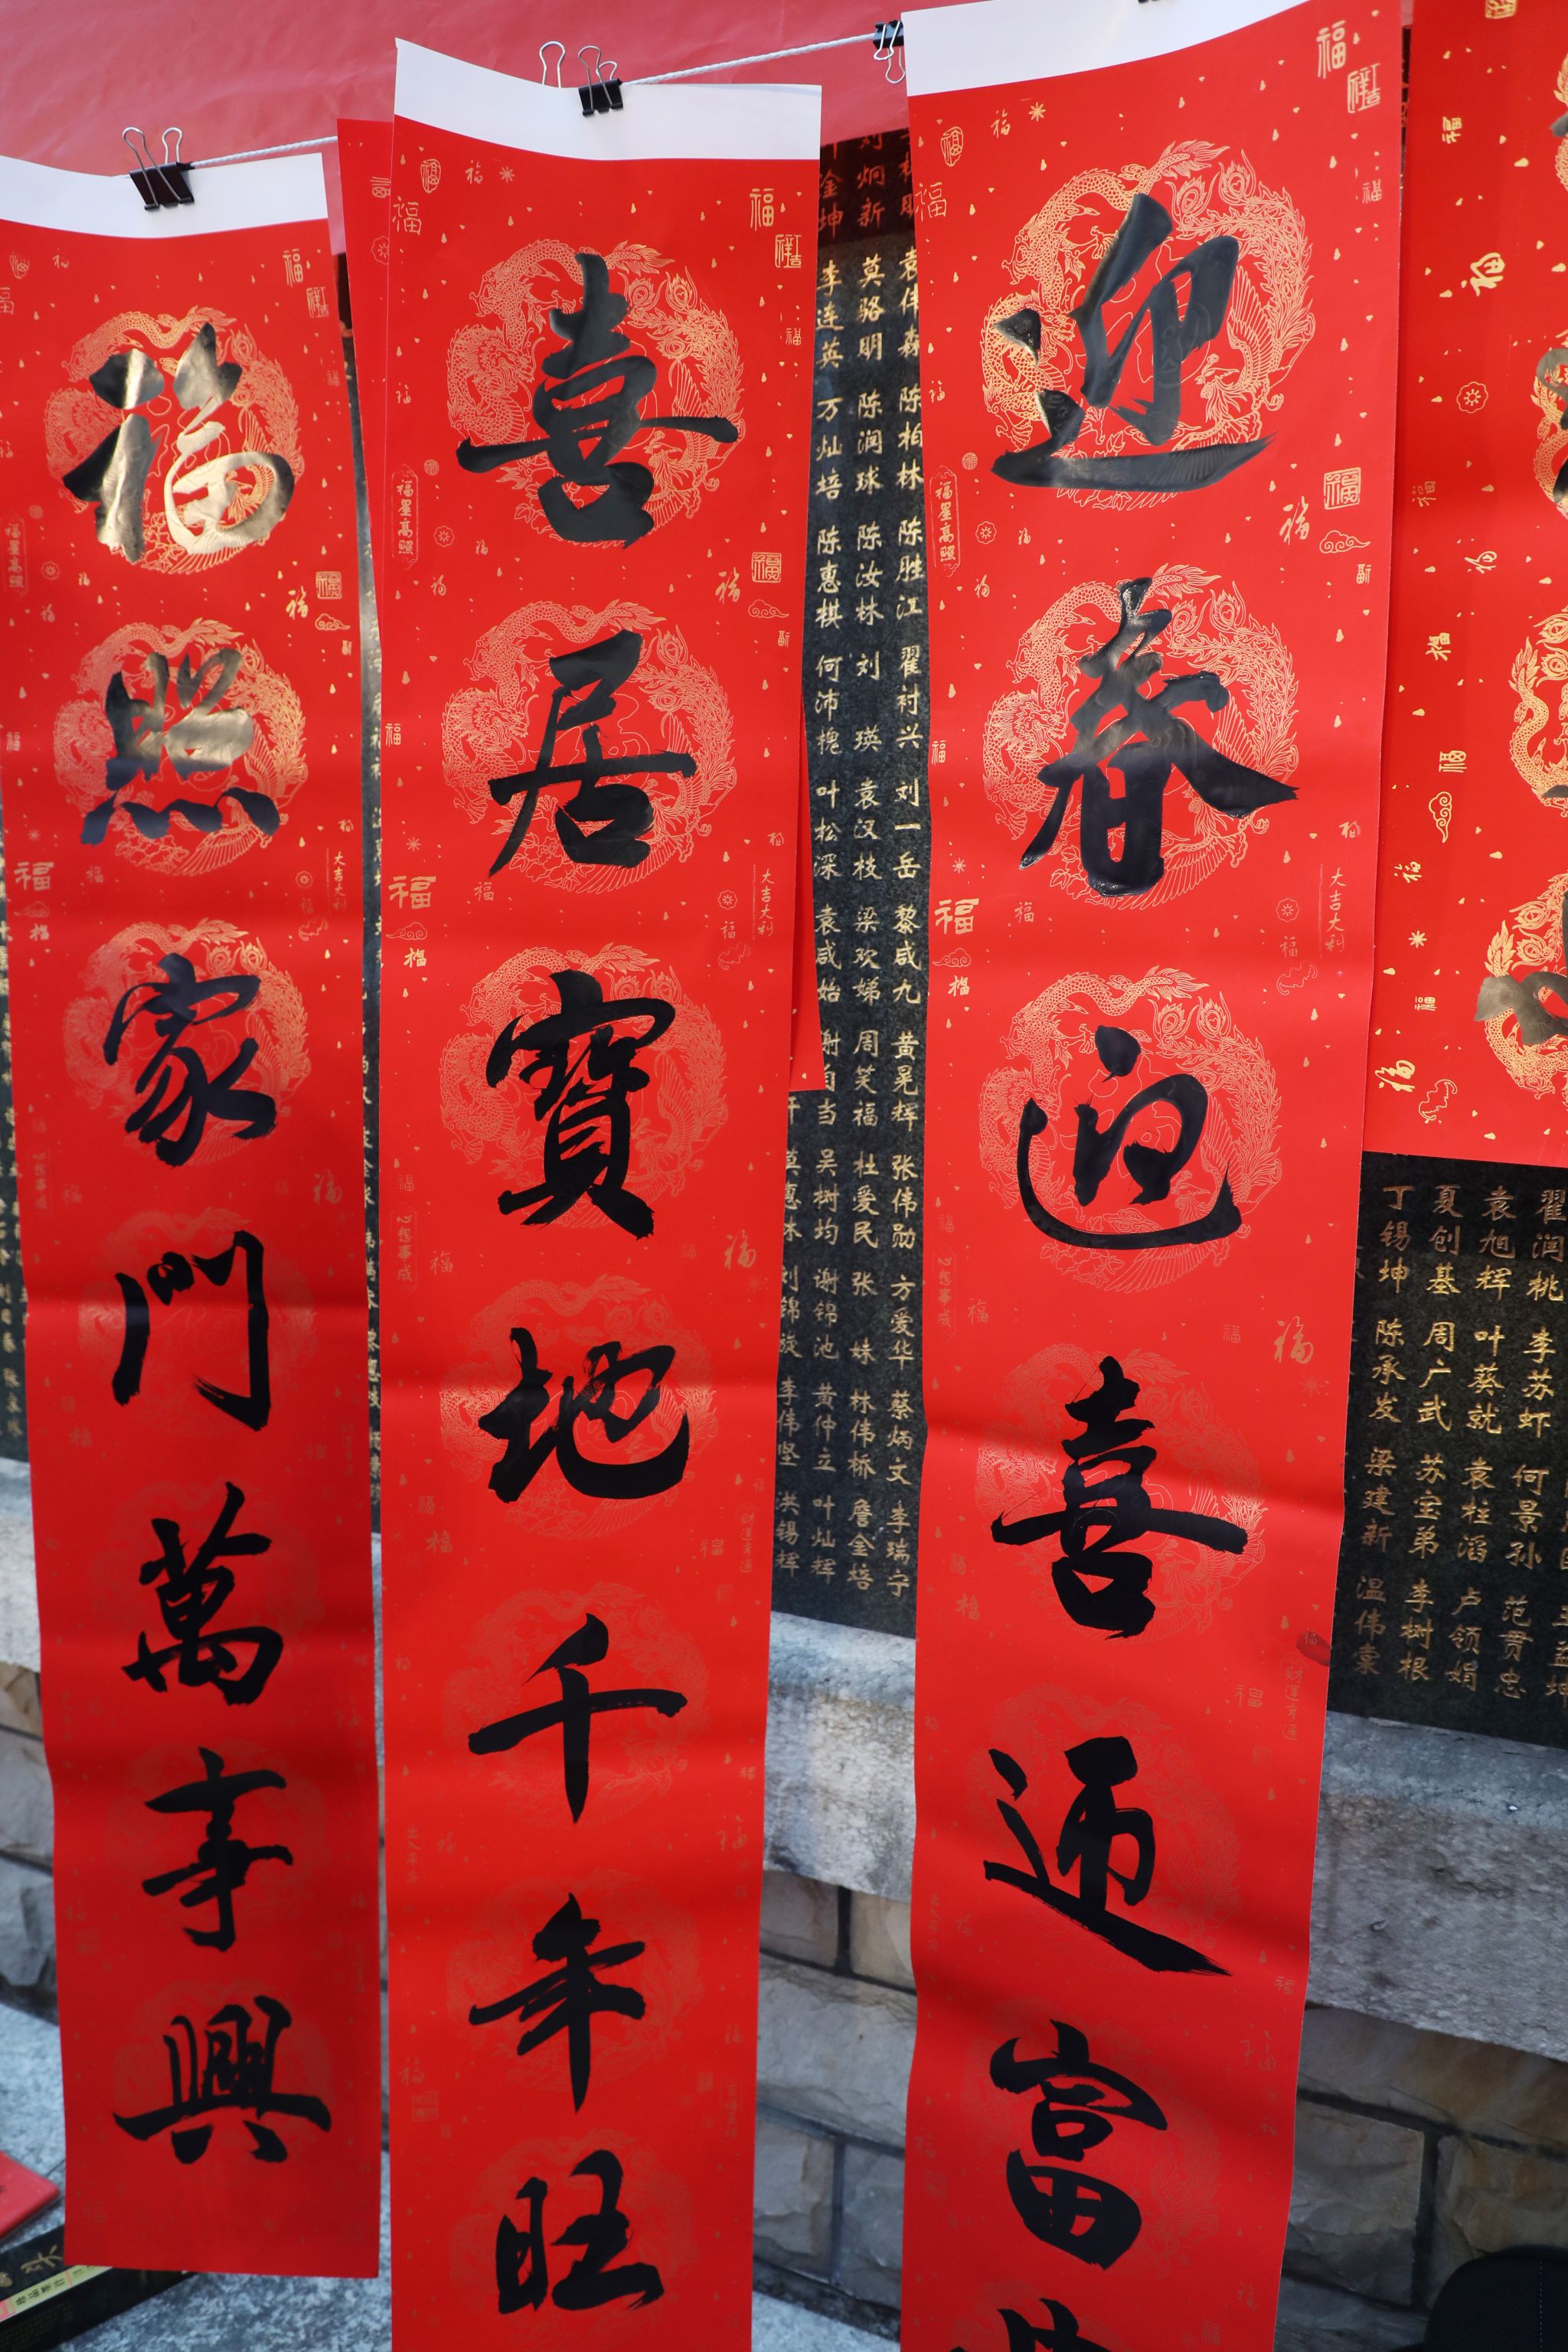 迎春迎喜迎富
喜居寶地千年旺
福照家門萬事興
翟润桃 李苏虾 何景孙
袁旭辉 叶葵就 袁柱滔 卢领娟
夏创基 周广武 苏宝弟 李树根
丁锡坤 陈承发 梁建新 温伟棠
袁伟森 陈柏林 陈胜江 翟衬兴 刘一岳 黎咸九 黄晃辉 张伟勋 方爱华 蔡炳文 李瑞宁
炯新 莫骆明 陈润球 陈汝林 刘瑛 袁汉枝 梁欢娣 周笑福 杜爱民 张妹 林伟桥 詹金培
金坤 李连英 万灿培 陈惠棋 何沛槐 叶松深 袁咸始 谢自当 吴树均 谢锦池 黄仲立 叶灿辉
刘锦旋 李伟坚 洪锡辉
福星高照
大吉大利
心想事成
财运亨通
福